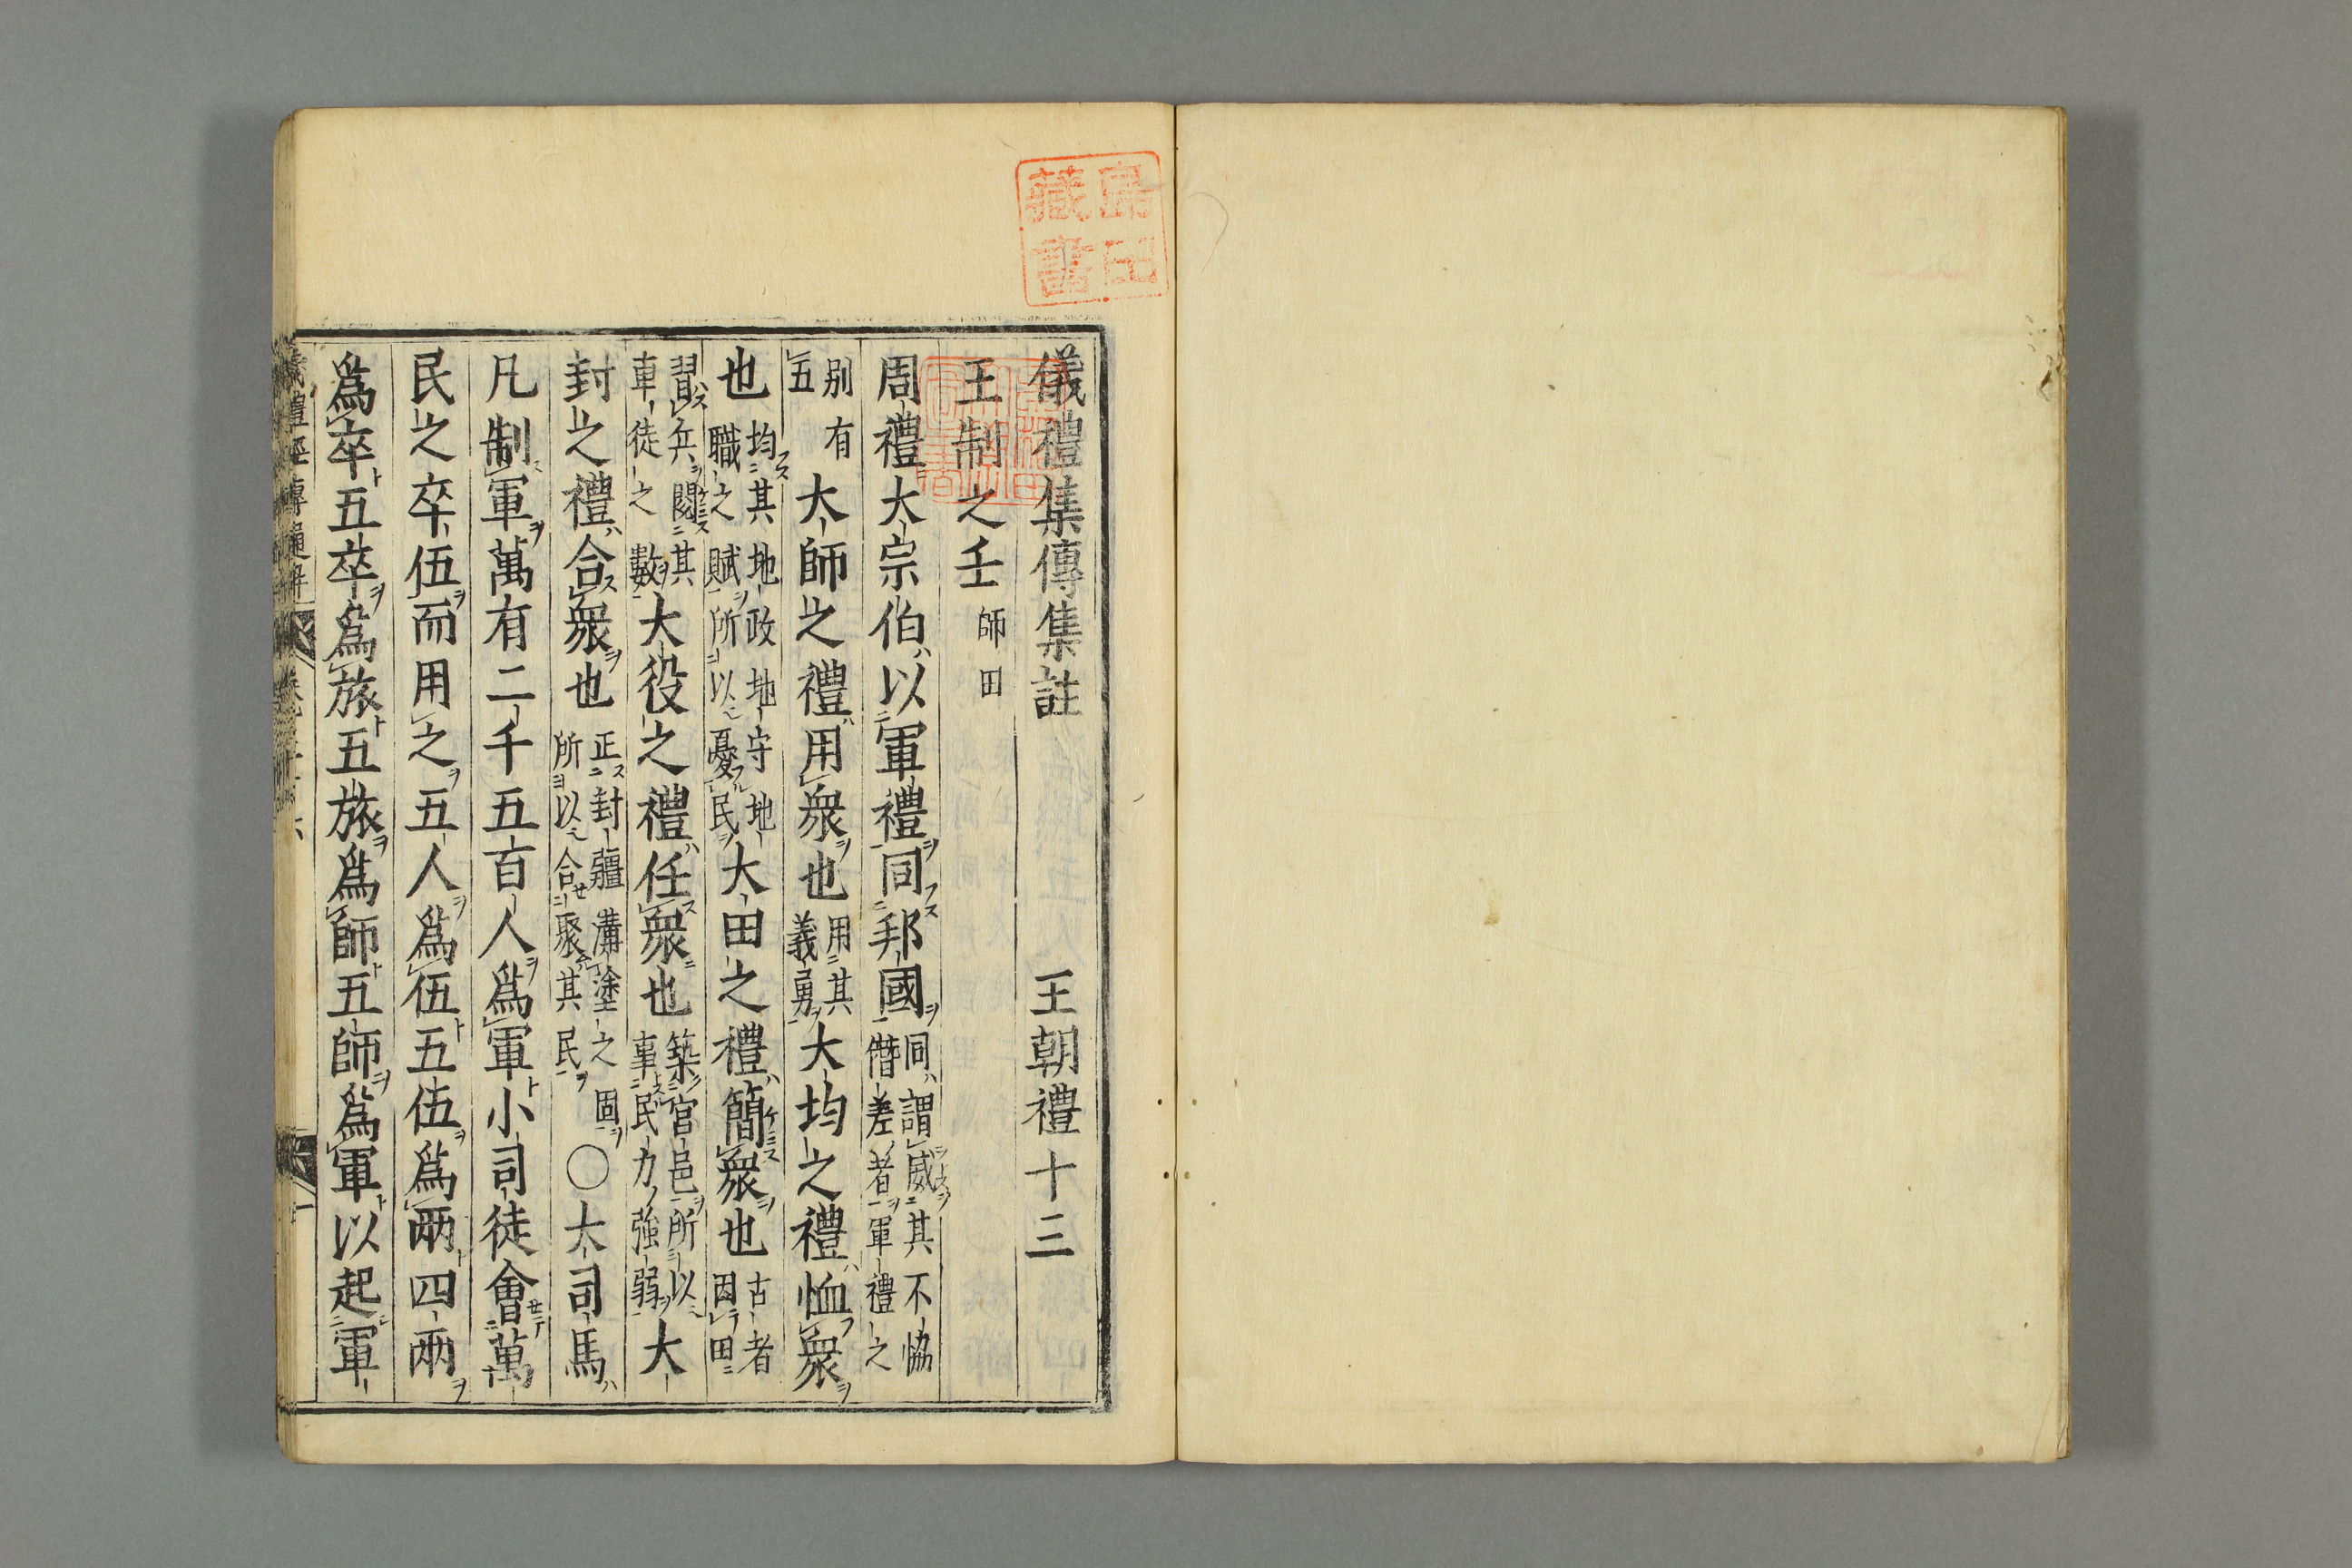 儀禮集傳集註　王朝禮十三
王制之壬　師田
周禮大宗伯以軍禮同邦國　同謂威其不恊僭差者軍禮之
別有五　大師之禮用衆也　用其義勇　大均之禮恤衆
也　均其地政地守地職之賦所以憂民　大田之禮簡衆也　古者因田
習兵閱其車徒之數　大役之禮任衆也　築宮邑所以事民力強弱　大
封之禮合衆也　正封疆溝塗之固所以合聚其民　○大司馬
凡制軍萬有二千五百人爲軍小司徒會萬
民之卒伍而用之五人爲伍五伍爲兩四兩
爲卒五卒爲旅五旅爲師五師爲軍以起軍
儀禮經傳通解
島田藏書